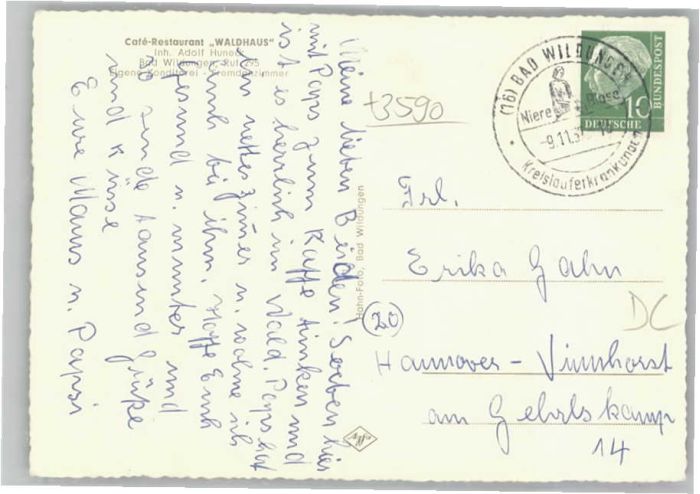 Café-Restaurant „WALDHAUS"
Inh. Adolf Huneck
Bad Wildungen, Ruf 295
Eigene Konditorei - Fremdenzimmer
Meine lieben Beiden! Soeben hier
mit Paps zum Kaffe trinken und
ist es herrlich im Wald. Paps hat
ein nettes Zimmer u. wohne ich
auch bei ihm. Hoffe Euch
gesund u. munter und
so sende tausend Grüße
und Küsse
Eure Mama u. Papsi
Hahn-Foto, Bad Wildungen
+3590
(16) BAD WILDUNGEN
Niere
Blase
-9.11.5
Kreislauferkrankungen
10
DEUTSCHE
BUNDESPOST
Frl.
Erika Gahn
(20)
DC
Hannover - Vinnhorst
am Gehrlskamp
14